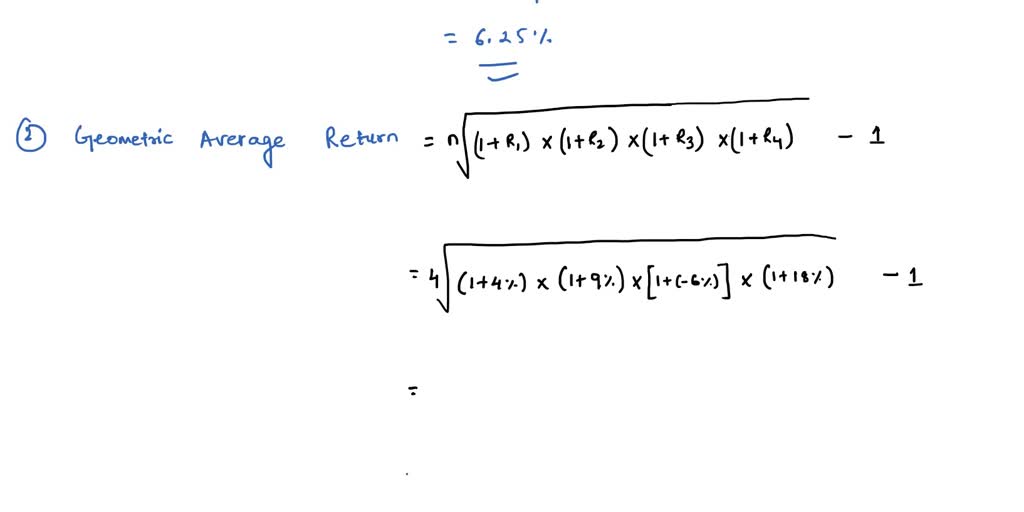 = 6.25%
② Geometric Average Return = n√(1+R₁) × (1+R₂) × (1+R₃) × (1+R₄) - 1
= 4√(1+4%) × (1+9%) × [1+(-6%)] × (1+18%) - 1
=